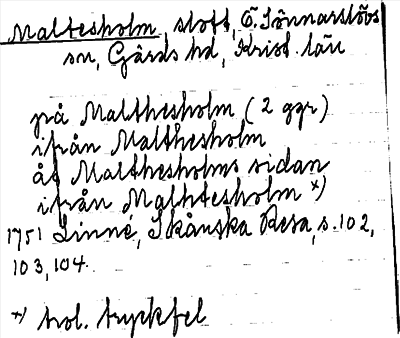 Maltesholm, slott, Ö. Sönnarslövs
sn, Gärds hd, Krist. län
på Malthesholm (2 ggr)
ifrån Malthesholm
åt Malthesholms sidan
ifrån Malhtesholm x)
1751 Linné, Skånska Resa, s. 102,
103, 104.
x) trol. tryckfel